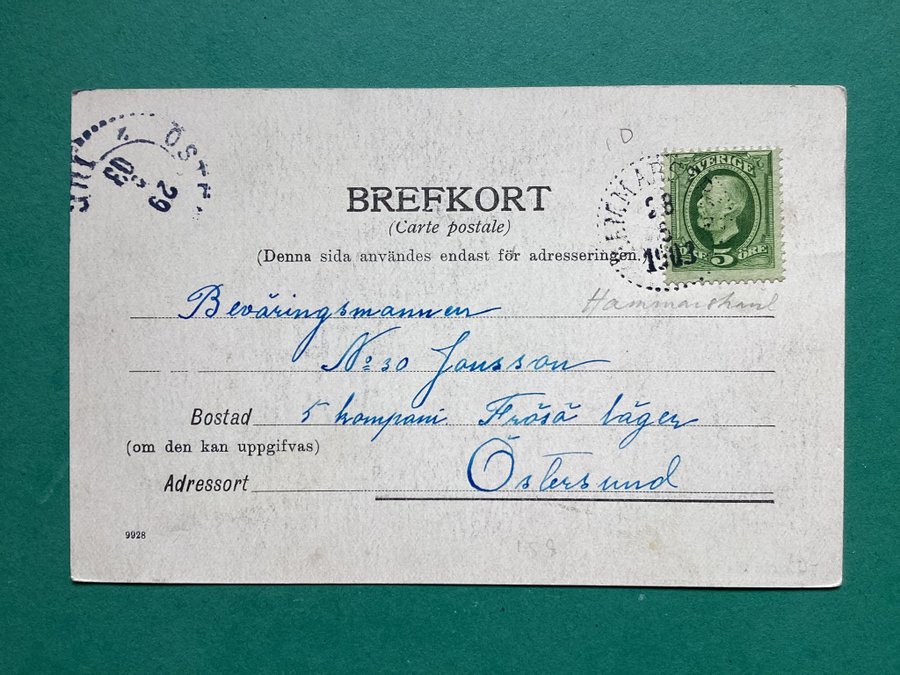 ÖST
29
03
D
HAMMARS
28
1903
SVERIGE
5 ÖRE
BREFKORT
(Carte postale)
(Denna sida användes endast för adresseringen.)
Hammarstrand
Beväringsmannen
No 30 Jonsson
Bostad 5 kompani Frösö läger
(om den kan uppgifvas)
Östersund
Adressort
9928
158